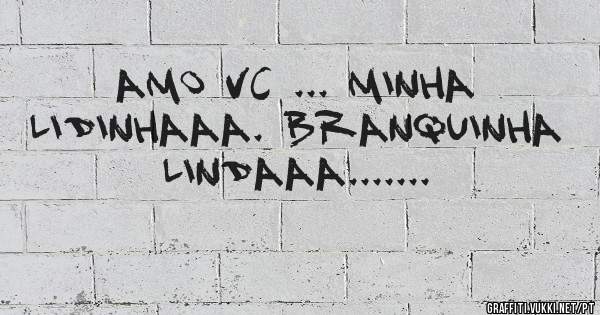 AMO VC ... MINHA
LIDINHAAA. BRANQUINHA
LINDAAA.......
GRAFFITI.VUKKI.NET/PT